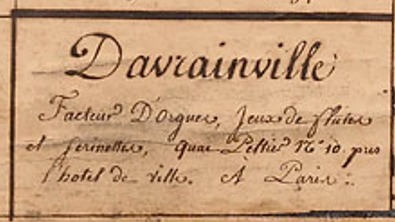 Davrainville
Facteur D'Orgues, Jeux de flutes
et serinettes, Quai Peltier N° 10. pres
l'hotel de ville. A Paris.